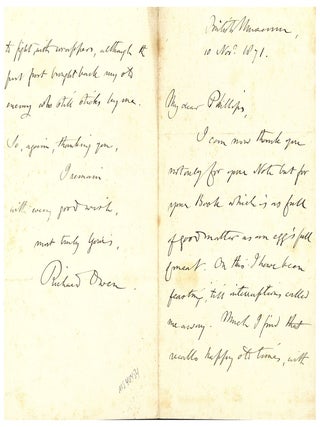 British Museum,
10 Nov. 1871.
My dear Phillips,
I can now thank you
not only for your Note but for
your Book which is as full
of good matter as an egg's full
of meat. On this I have been
feasting, till interruptions called
me away. Much I find that
recalls happy old times, with
to fight with wrappers, although the
first part brought back my old
enemy who still sticks by me.
So, again, thanking you,
I remain
with every good wish,
most truly Yours,
Richard Owen.